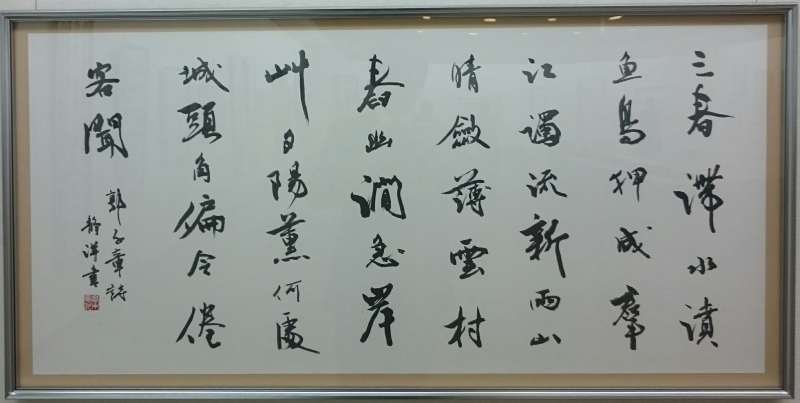 三春滯水濆
魚鳥狎成羣
江濁流新雨山
晴斂薄雲村
舂幽澗急岸
艸夕陽薰何處
城頭角偏令倦
客聞
郭子章詩
靜洋書